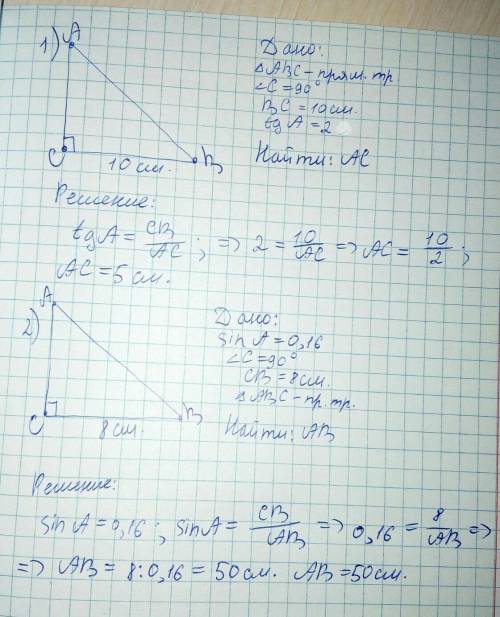 1) A
C
B
10 см.
Дано:
△ABC - прям. тр.
∠C = 90°
BC = 10 см.
tg A = 2
Найти: AC
Решение:
tg A = CB/AC; => 2 = 10/AC => AC = 10/2;
AC = 5 см.
2) A
C
B
8 см.
Дано:
sin A = 0,16
∠C = 90°
CB = 8 см.
△ABC - пр. тр.
Найти: AB
Решение:
sin A = 0,16; sin A = CB/AB => 0,16 = 8/AB =>
=> AB = 8 : 0,16 = 50 см. AB = 50 см.